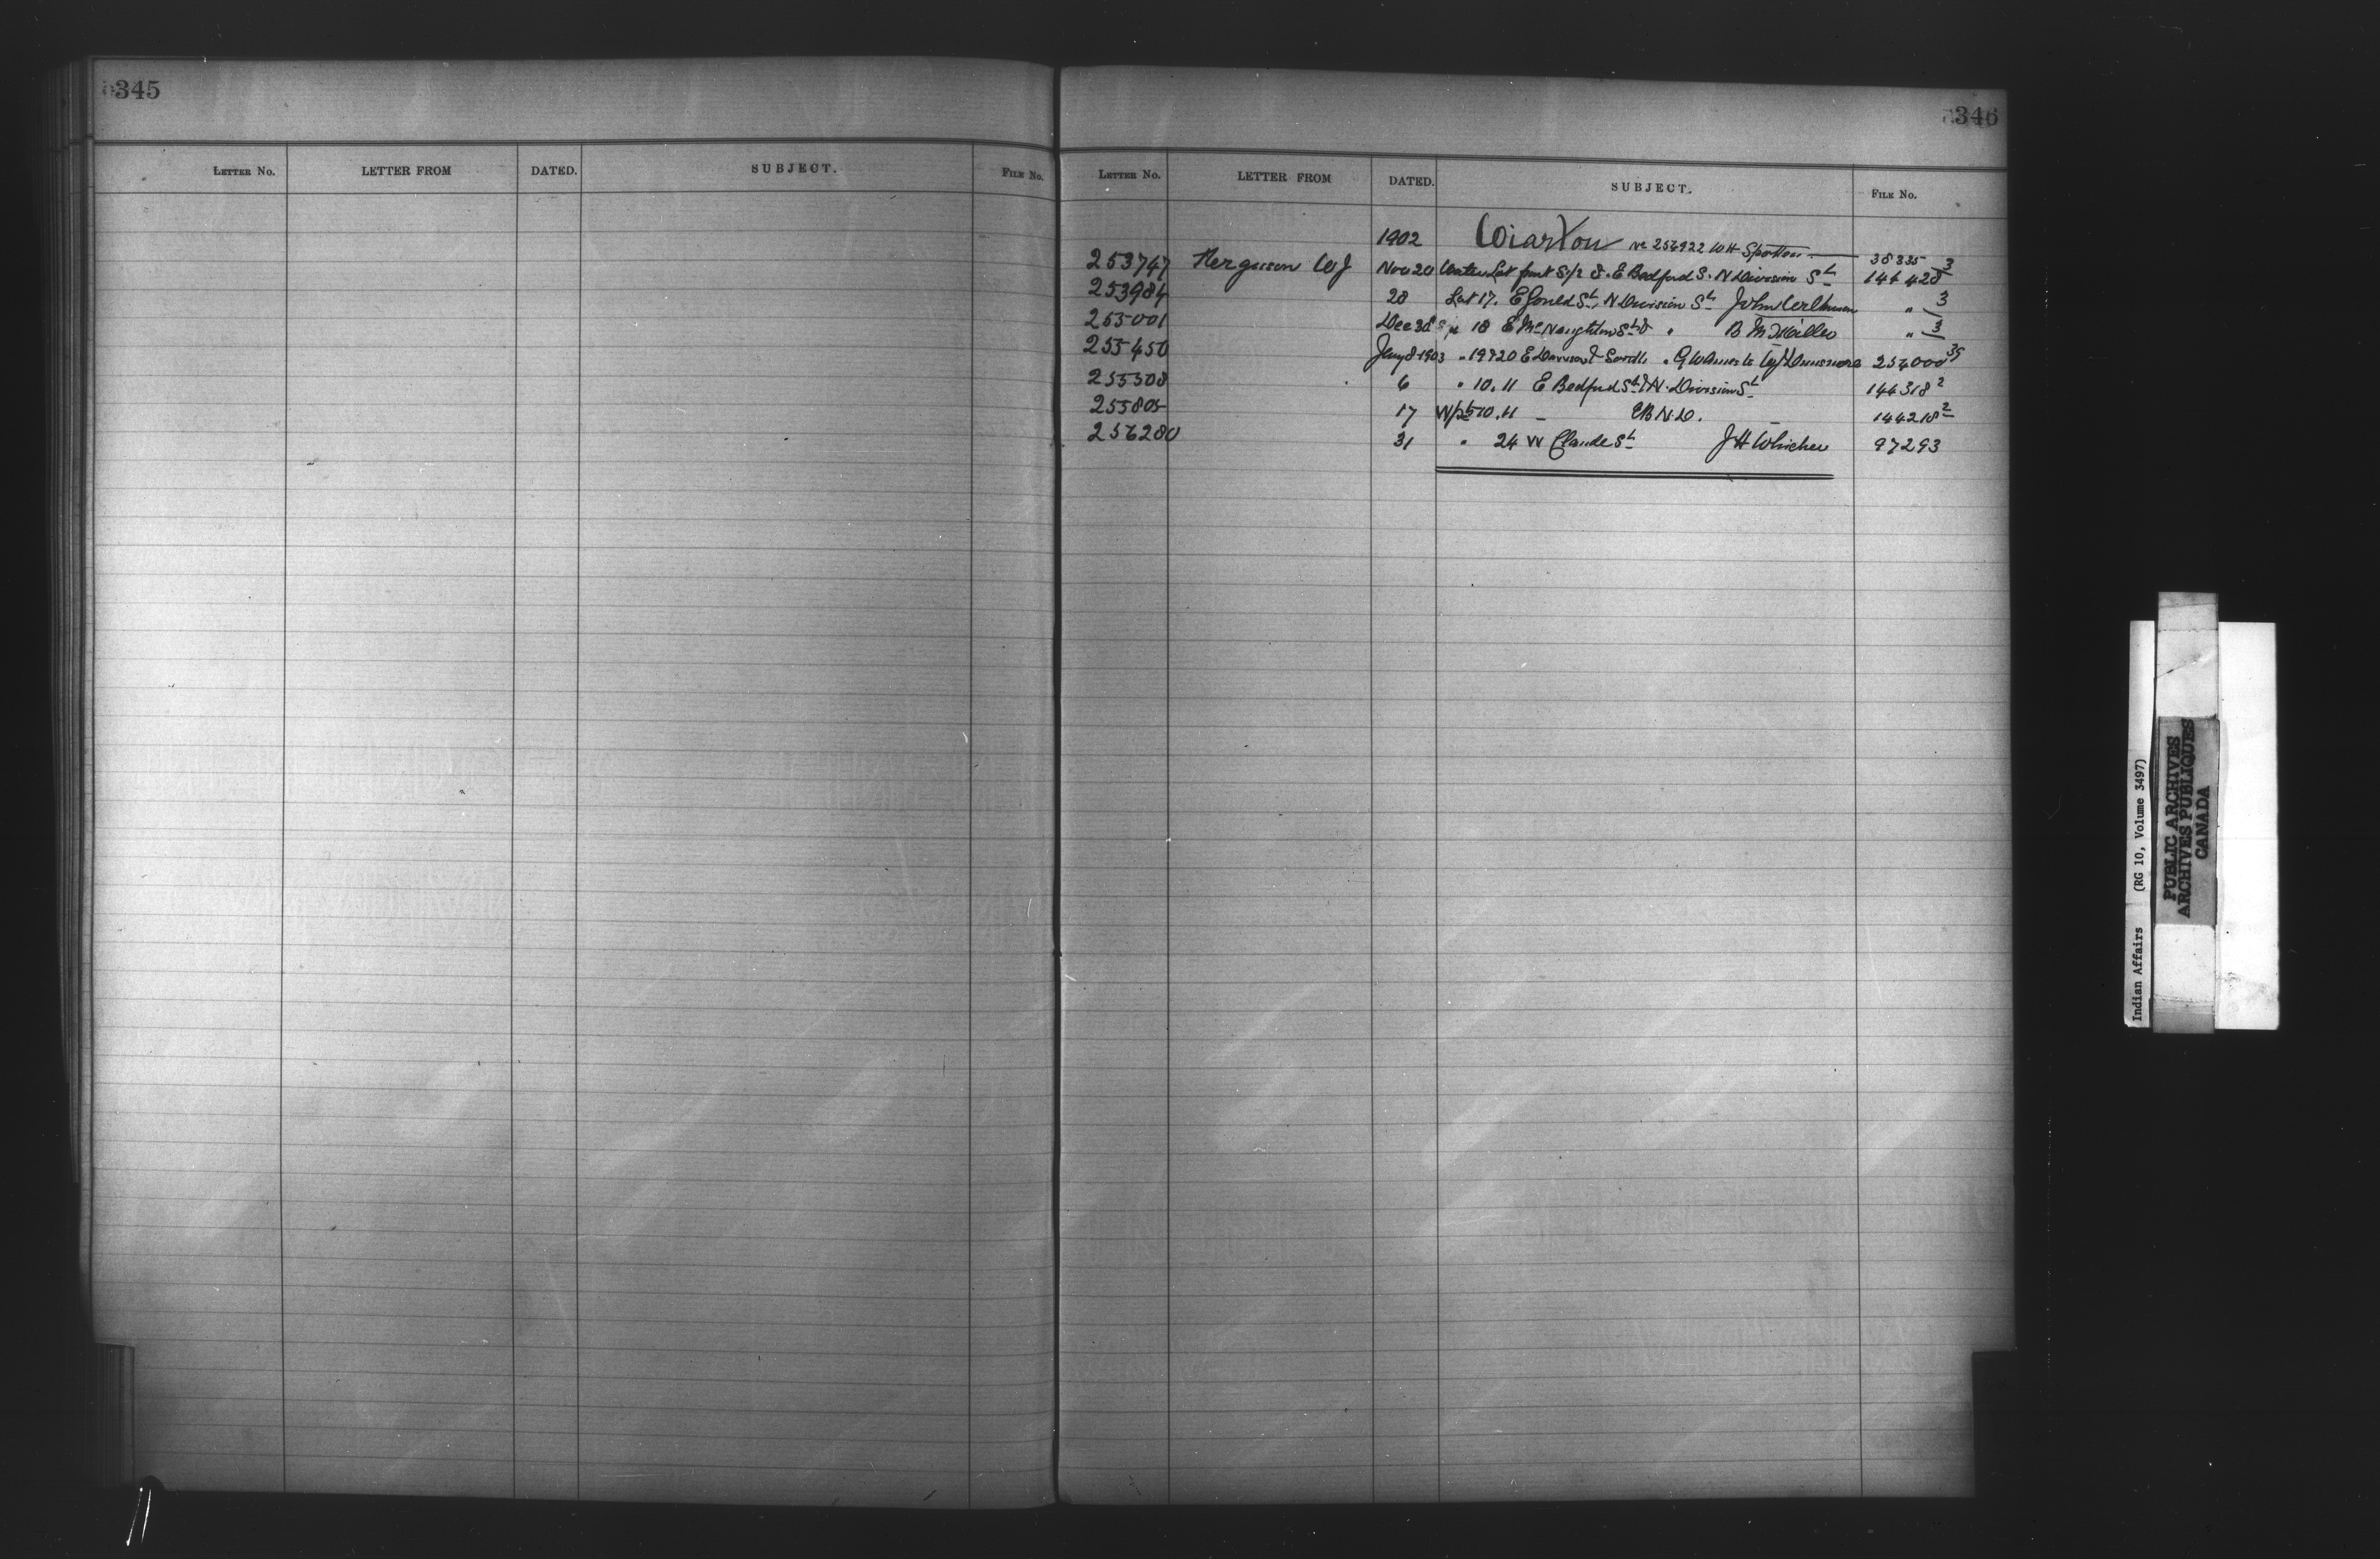 345
LETTER No. LETTER FROM DATED. SUBJECT. FILE No.
346
LETTER No. LETTER FROM DATED. SUBJECT. FILE No.
1902 Wiarton No 256922 WH Spotton 38335
253747 Ferguson WJ Nov 20 Water Lot front S/2 8. E Bedford S. N Division St 144428 3
253984 28 Lot 17. E Gould St, N Division St John " 3
255001 Dec 30 18 E McNaughton St " B Miller " 3
255450 Jany 8 1903 " 19 & 20 E 254000 35
255508 6 " 10. 11 E Bedford St & N. Division St 144318 2
255805 17 W pt 10. 11 - EB N.D. 144218 2
256280 31 " 24 W Claude St JH Whicher 97293
Indian Affairs (RG 10, Volume 3497)
PUBLIC ARCHIVES
ARCHIVES PUBLIQUES
CANADA